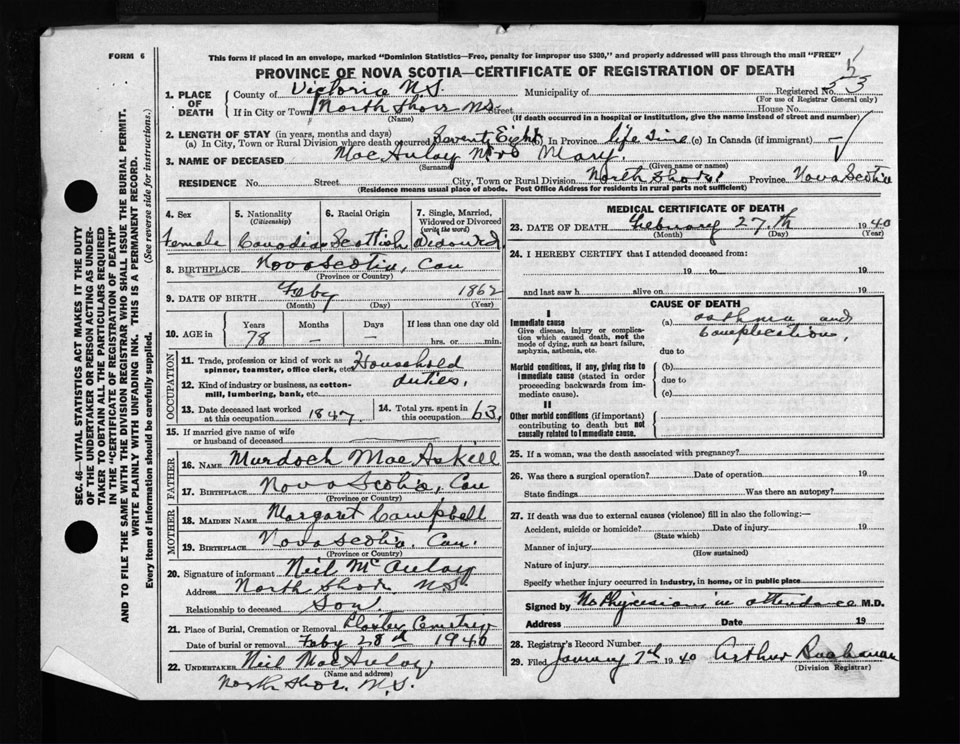 FORM 6
This form if placed in an envelope, marked "Dominion Statistics—Free, penalty for improper use $300," and properly addressed will pass through the mail "FREE"
PROVINCE OF NOVA SCOTIA—CERTIFICATE OF REGISTRATION OF DEATH
1. PLACE OF DEATH
County of Victoria N.S. Municipality of Registered No. 53
(For use of Registrar General only)
If in City or Town North Shore N.S. Street House No.
(Name) (If death occurred in a hospital or institution, give the name instead of street and number)
2. LENGTH OF STAY (in years, months and days)
(a) In City, Town or Rural Division where death occurred Seventy Eight (b) In Province life time (c) In Canada (if immigrant) —
3. NAME OF DECEASED MacAulay Mrs Mary.
(Surname) (Given name or names)
RESIDENCE No. Street City, Town or Rural Division North Shore Province Nova Scotia
(Residence means usual place of abode. Post Office Address for residents in rural parts not sufficient)
4. Sex
Female
5. Nationality (Citizenship)
Canadian
6. Racial Origin
Scottish
7. Single, Married, Widowed or Divorced (write the word)
Widowed.
8. BIRTHPLACE Nova Scotia, Can
(Province or Country)
9. DATE OF BIRTH Feby 1862
(Month) (Day) (Year)
10. AGE in Years Months Days If less than one day old
78 — — hrs. or min.
OCCUPATION
11. Trade, profession or kind of work as spinner, teamster, office clerk, etc. Household
12. Kind of industry or business, as cotton-mill, lumbering, bank, etc. duties,
13. Date deceased last worked at this occupation 1847
14. Total yrs. spent in this occupation 63,
15. If married give name of wife or husband of deceased
FATHER
16. NAME Murdoch MacAskill
17. BIRTHPLACE Nova Scotia, Can
(Province or Country)
MOTHER
18. MAIDEN NAME Margaret Campbell
19. BIRTHPLACE Nova Scotia, Can.
(Province or Country)
20. Signature of informant Neil McAulay
Address North Shore N.S.
Relationship to deceased Son
21. Place of Burial, Cremation or Removal Cemetery
Date of burial or removal Feby 28th 1940
22. UNDERTAKER Neil MacAulay
(Name and address)
North Shore, N.S.
MEDICAL CERTIFICATE OF DEATH
23. DATE OF DEATH February 27.th 1940
(Month) (Day) (Year)
24. I HEREBY CERTIFY that I attended deceased from:
19 to 19
and last saw h alive on 19
CAUSE OF DEATH
I
Immediate cause
Give disease, injury or complication which caused death, not the mode of dying, such as heart failure, asphyxia, asthenia, etc.
(a) asthma and Complications,
due to
Morbid conditions, if any, giving rise to immediate cause (stated in order proceeding backwards from immediate cause).
(b)
due to
(c)
II
Other morbid conditions (if important) contributing to death but not causally related to immediate cause.
25. If a woman, was the death associated with pregnancy?
26. Was there a surgical operation? Date of operation 19
State findings Was there an autopsy?
27. If death was due to external causes (violence) fill in also the following:—
Accident, suicide or homicide? Date of injury 19
(State which)
Manner of injury
(How sustained)
Nature of injury
Specify whether injury occurred in industry, in home, or in public place
Signed by No Physician in attendance M.D.
Address Date 19
28. Registrar's Record Number
29. Filed January 7th 1940 Arthur Buchanan
(Division Registrar)
SEC. 46—VITAL STATISTICS ACT MAKES IT THE DUTY
OF THE UNDERTAKER OR PERSON ACTING AS UNDER-
TAKER TO OBTAIN ALL THE PARTICULARS REQUIRED
IN THE "CERTIFICATE OF REGISTRATION OF DEATH"
AND TO FILE THE SAME WITH THE DIVISION REGISTRAR WHO SHALL ISSUE THE BURIAL PERMIT.
WRITE PLAINLY WITH UNFADING INK. THIS IS A PERMANENT RECORD.
Every item of information should be carefully supplied. (See reverse side for instructions.)